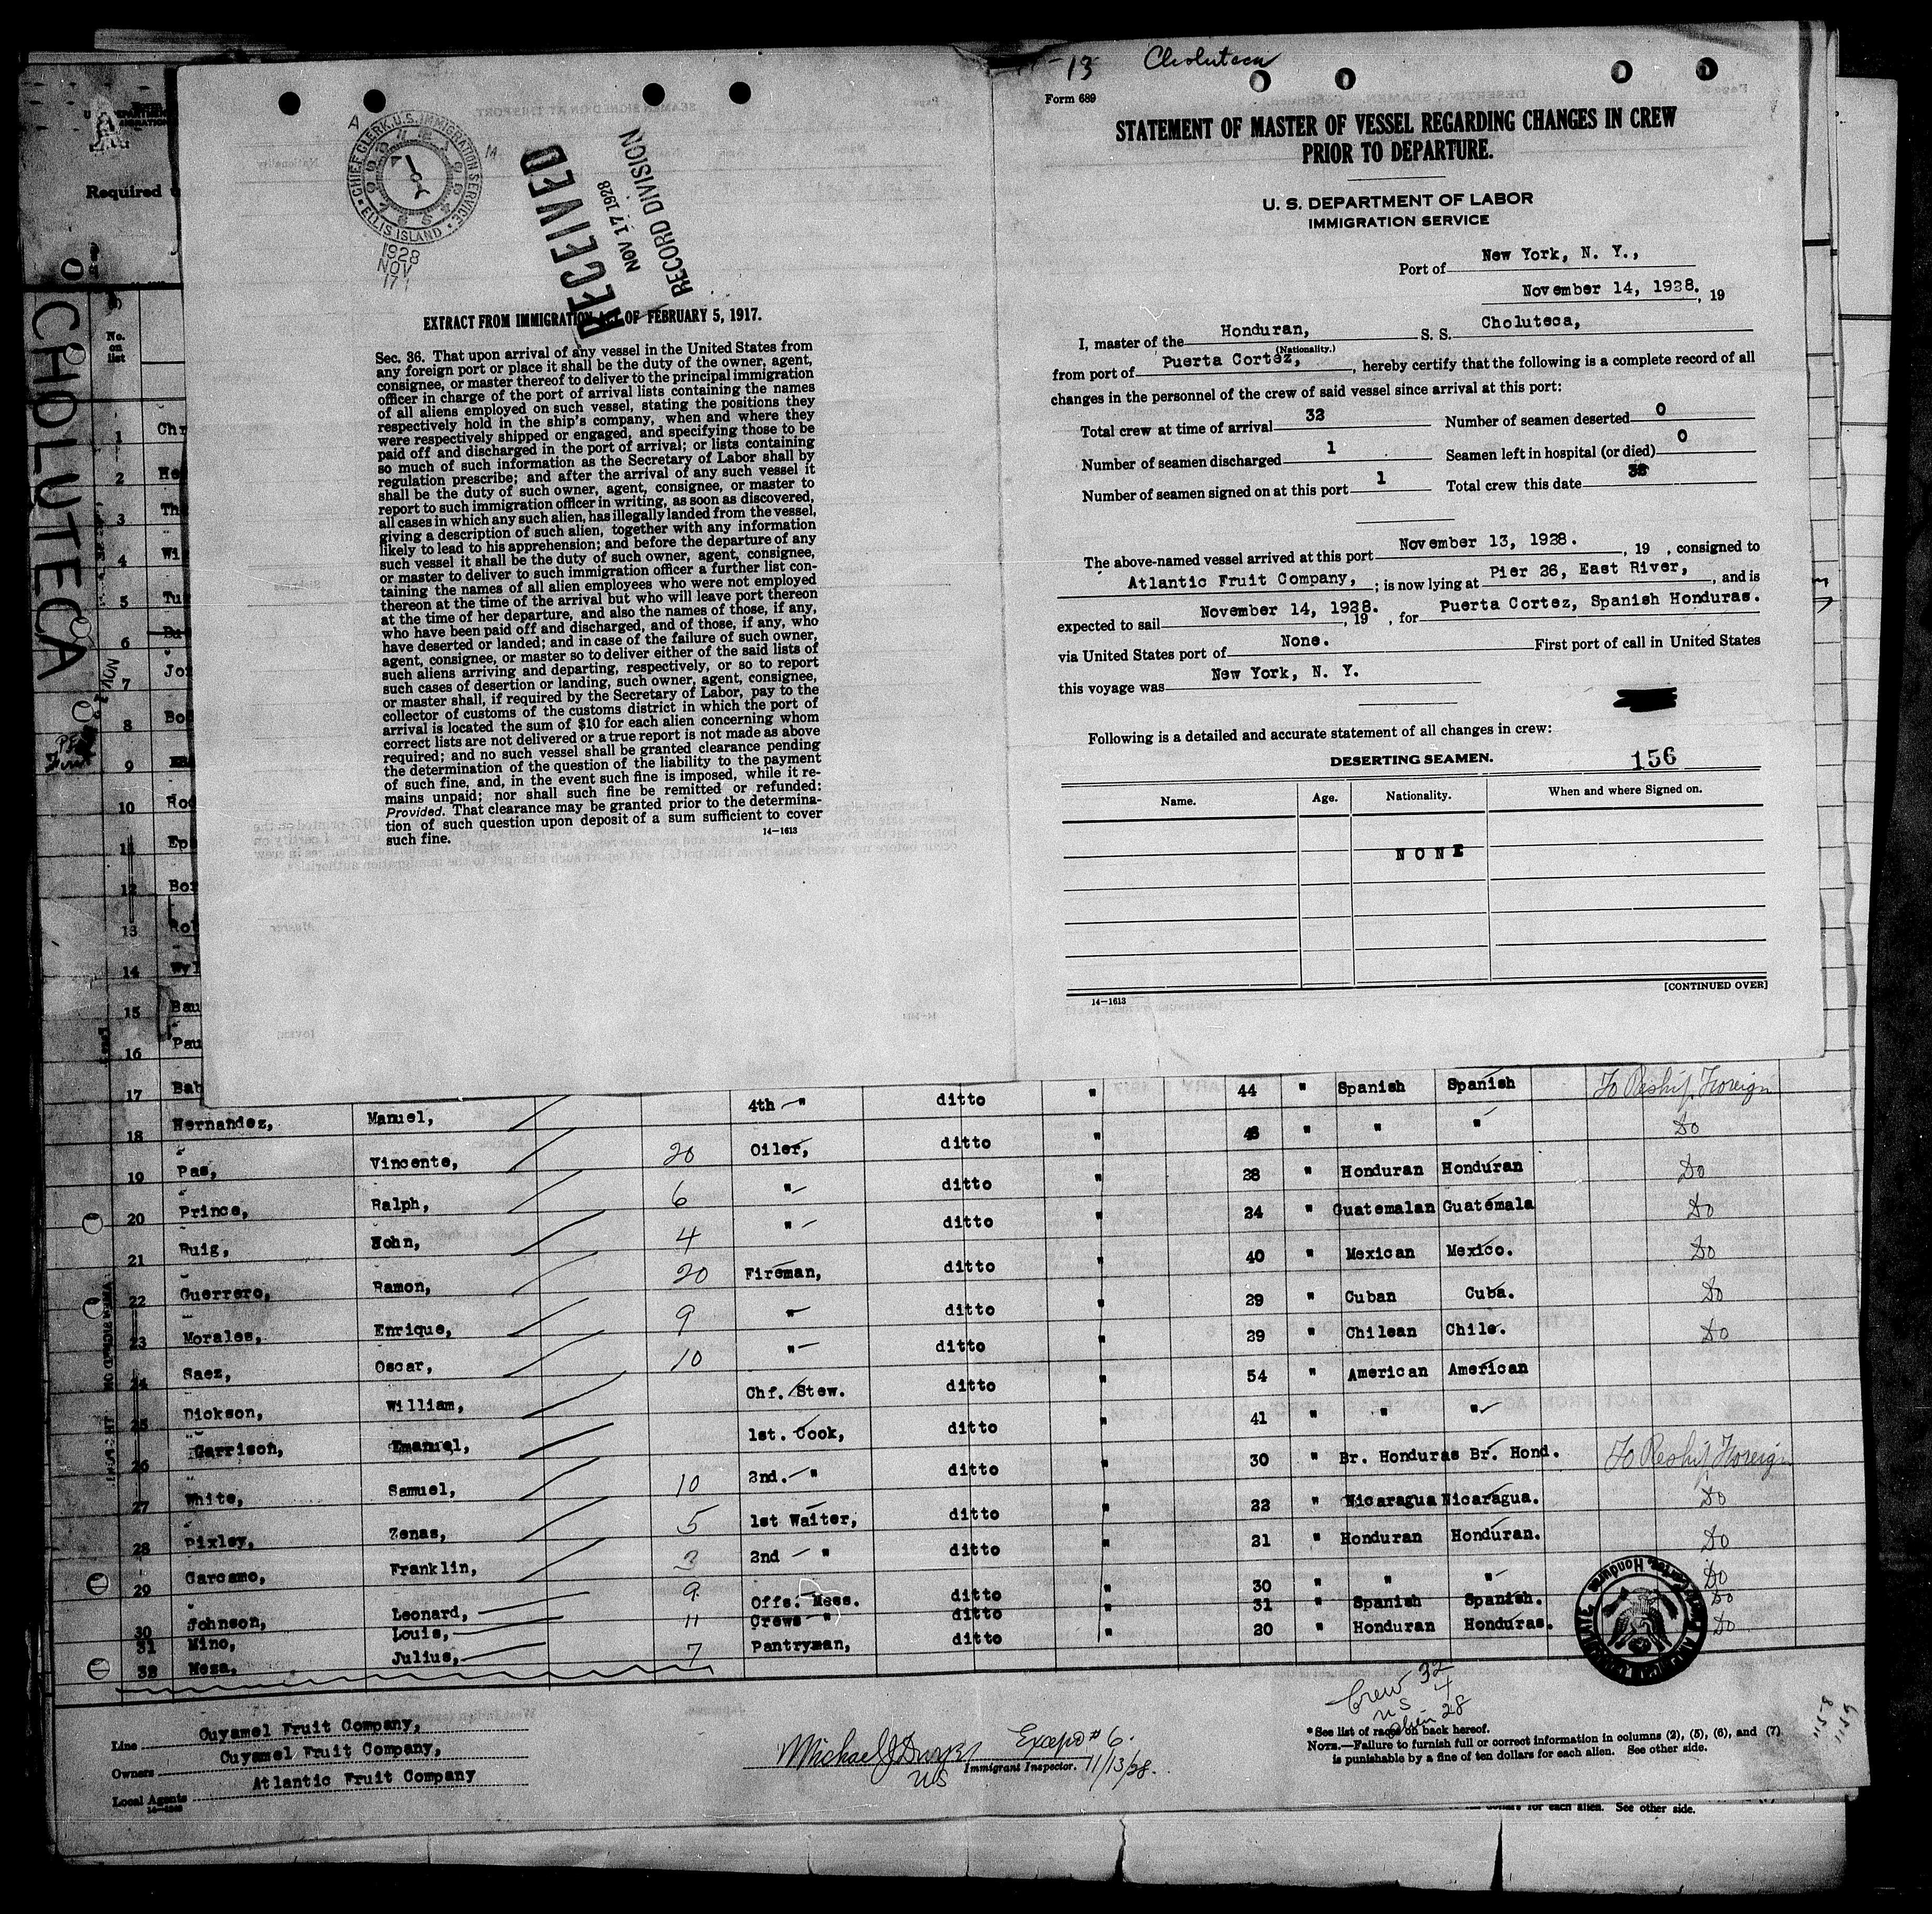 -13 Choluteca
Form 689
STATEMENT OF MASTER OF VESSEL REGARDING CHANGES IN CREW
PRIOR TO DEPARTURE.
U. S. DEPARTMENT OF LABOR
IMMIGRATION SERVICE
Port of New York, N. Y.,
November 14, 1928. , 19
I, master of the Honduran, S. S. Choluteca,
(Nationality.)
from port of Puerta Cortez, , hereby certify that the following is a complete record of all
changes in the personnel of the crew of said vessel since arrival at this port:
Total crew at time of arrival 32 Number of seamen deserted 0
Number of seamen discharged 1 Seamen left in hospital (or died) 0
Number of seamen signed on at this port 1 Total crew this date
The above-named vessel arrived at this port November 13, 1928. , 19 , consigned to
Atlantic Fruit Company, ; is now lying at Pier 26, East River, , and is
expected to sail November 14, 1928. , 19 , for Puerta Cortez, Spanish Honduras.
via United States port of None. First port of call in United States
this voyage was New York, N. Y.
Following is a detailed and accurate statement of all changes in crew:
DESERTING SEAMEN. 156
Name. Age. Nationality. When and where Signed on.
NONE
14-1613
[CONTINUED OVER]
CHIEF CLERK, U.S. IMMIGRATION SERVICE
ELLIS ISLAND
A M
1928
NOV
17
RECEIVED
NOV 17 1928
RECORD DIVISION
EXTRACT FROM IMMIGRATION ACT OF FEBRUARY 5, 1917.
Sec. 36. That upon arrival of any vessel in the United States from
any foreign port or place it shall be the duty of the owner, agent,
consignee, or master thereof to deliver to the principal immigration
officer in charge of the port of arrival lists containing the names
of all aliens employed on such vessel, stating the positions they
respectively hold in the ship's company, when and where they
were respectively shipped or engaged, and specifying those to be
paid off and discharged in the port of arrival; or lists containing
so much of such information as the Secretary of Labor shall by
regulation prescribe; and after the arrival of any such vessel it
shall be the duty of such owner, agent, consignee, or master to
report to such immigration officer in writing, as soon as discovered,
all cases in which any such alien, has illegally landed from the vessel,
giving a description of such alien, together with any information
likely to lead to his apprehension; and before the departure of any
such vessel it shall be the duty of such owner, agent, consignee,
or master to deliver to such immigration officer a further list con-
taining the names of all alien employees who were not employed
thereon at the time of the arrival but who will leave port thereon
at the time of her departure, and also the names of those, if any,
who have been paid off and discharged, and of those, if any, who
have deserted or landed; and in case of the failure of such owner,
agent, consignee, or master so to deliver either of the said lists of
such aliens arriving and departing, respectively, or so to report
such cases of desertion or landing, such owner, agent, consignee,
or master shall, if required by the Secretary of Labor, pay to the
collector of customs of the customs district in which the port of
arrival is located the sum of $10 for each alien concerning whom
correct lists are not delivered or a true report is not made as above
required; and no such vessel shall be granted clearance pending
the determination of the question of the liability to the payment
of such fine, and, in the event such fine is imposed, while it re-
mains unpaid; nor shall such fine be remitted or refunded:
Provided. That clearance may be granted prior to the determina-
tion of such question upon deposit of a sum sufficient to cover
such fine.
14-1613
Required
CHOLUTECA
No. on list
1 Chr
2 He
3 Th
4 Wi
5 Tu
6
7 Jo
8 Bo
9
10 Rod
11 Eph
12 Bo
13 Ro
14 Wyl
15 Bau
16 Pau
17 Bab
18 Hernandez, Manuel, 4th " ditto " 44 " Spanish Spanish To Reship Foreign
19 Pas, Vincente, 20 Oiler, ditto " " " " Do
20 Prince, Ralph, 6 " ditto " 28 " Honduran Honduran Do
21 Ruig, John, 4 " ditto " 24 " Guatemalan Guatemala Do
22 Guerrero, Ramon, 20 Fireman, ditto " 40 " Mexican Mexico. Do
23 Morales, Enrique, 9 " ditto " 29 " Cuban Cuba. Do
24 Saez, Oscar, 10 " ditto " 29 " Chilean Chile. Do
25 Dickson, William, Chf. Stew. ditto " 54 " American American
26 Garrison, Emanuel, 1st. Cook, ditto " 41 " " "
27 White, Samuel, 10 2nd. " ditto " 30 " Br. Honduras Br. Hond. To Reship Foreign
28 Pixley, Zenas, 5 1st Waiter, ditto " 22 " Nicaragua Nicaragua. Do
29 Carcamo, Franklin, 3 2nd " ditto " 21 " Honduran Honduran. Do
30 Johnson, Leonard, 9 Offs. Mess. ditto " 30 " " " Do
31 Mino, Louis, 11 Crews " ditto " 31 " Spanish Spanish. Do
32 Meza, Julius, 7 Pantryman, ditto " 20 " Honduran Honduras. Do
Crew 32
US 4
Alien 28
Line Cuyamel Fruit Company,
Owners Cuyamel Fruit Company,
Local Agents Atlantic Fruit Company
Michael J Dwyer
US Immigrant Inspector. 11/13/28.
* See list of races on back hereof.
NOTE.—Failure to furnish full or correct information in columns (2), (5), (6), and (7)
is punishable by a fine of ten dollars for each alien. See other side.
for each alien. See other side.